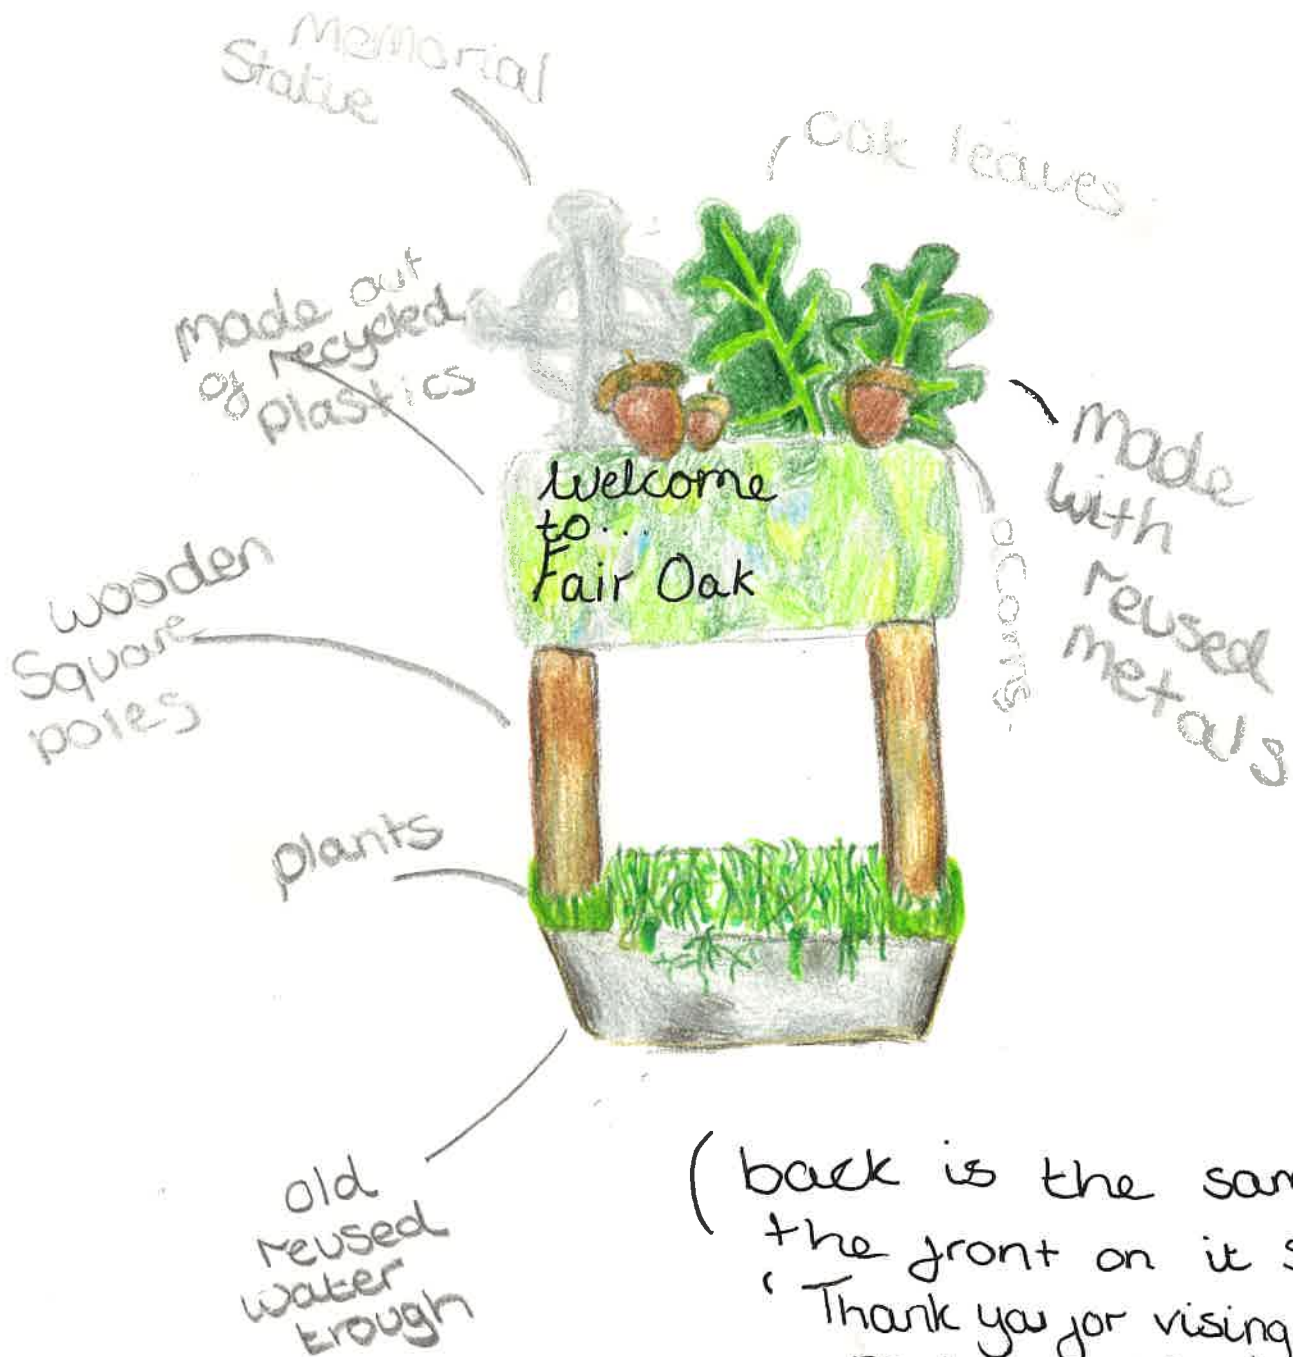 Memorial
Statue
oak leaves
made out
of recycled
plastics
Welcome
to...
Fair Oak
made
with
reused
metals
acorns.
wooden
Square
poles
plants
old
reused
water
trough
(back is the
the front on it
'Thank you for vising